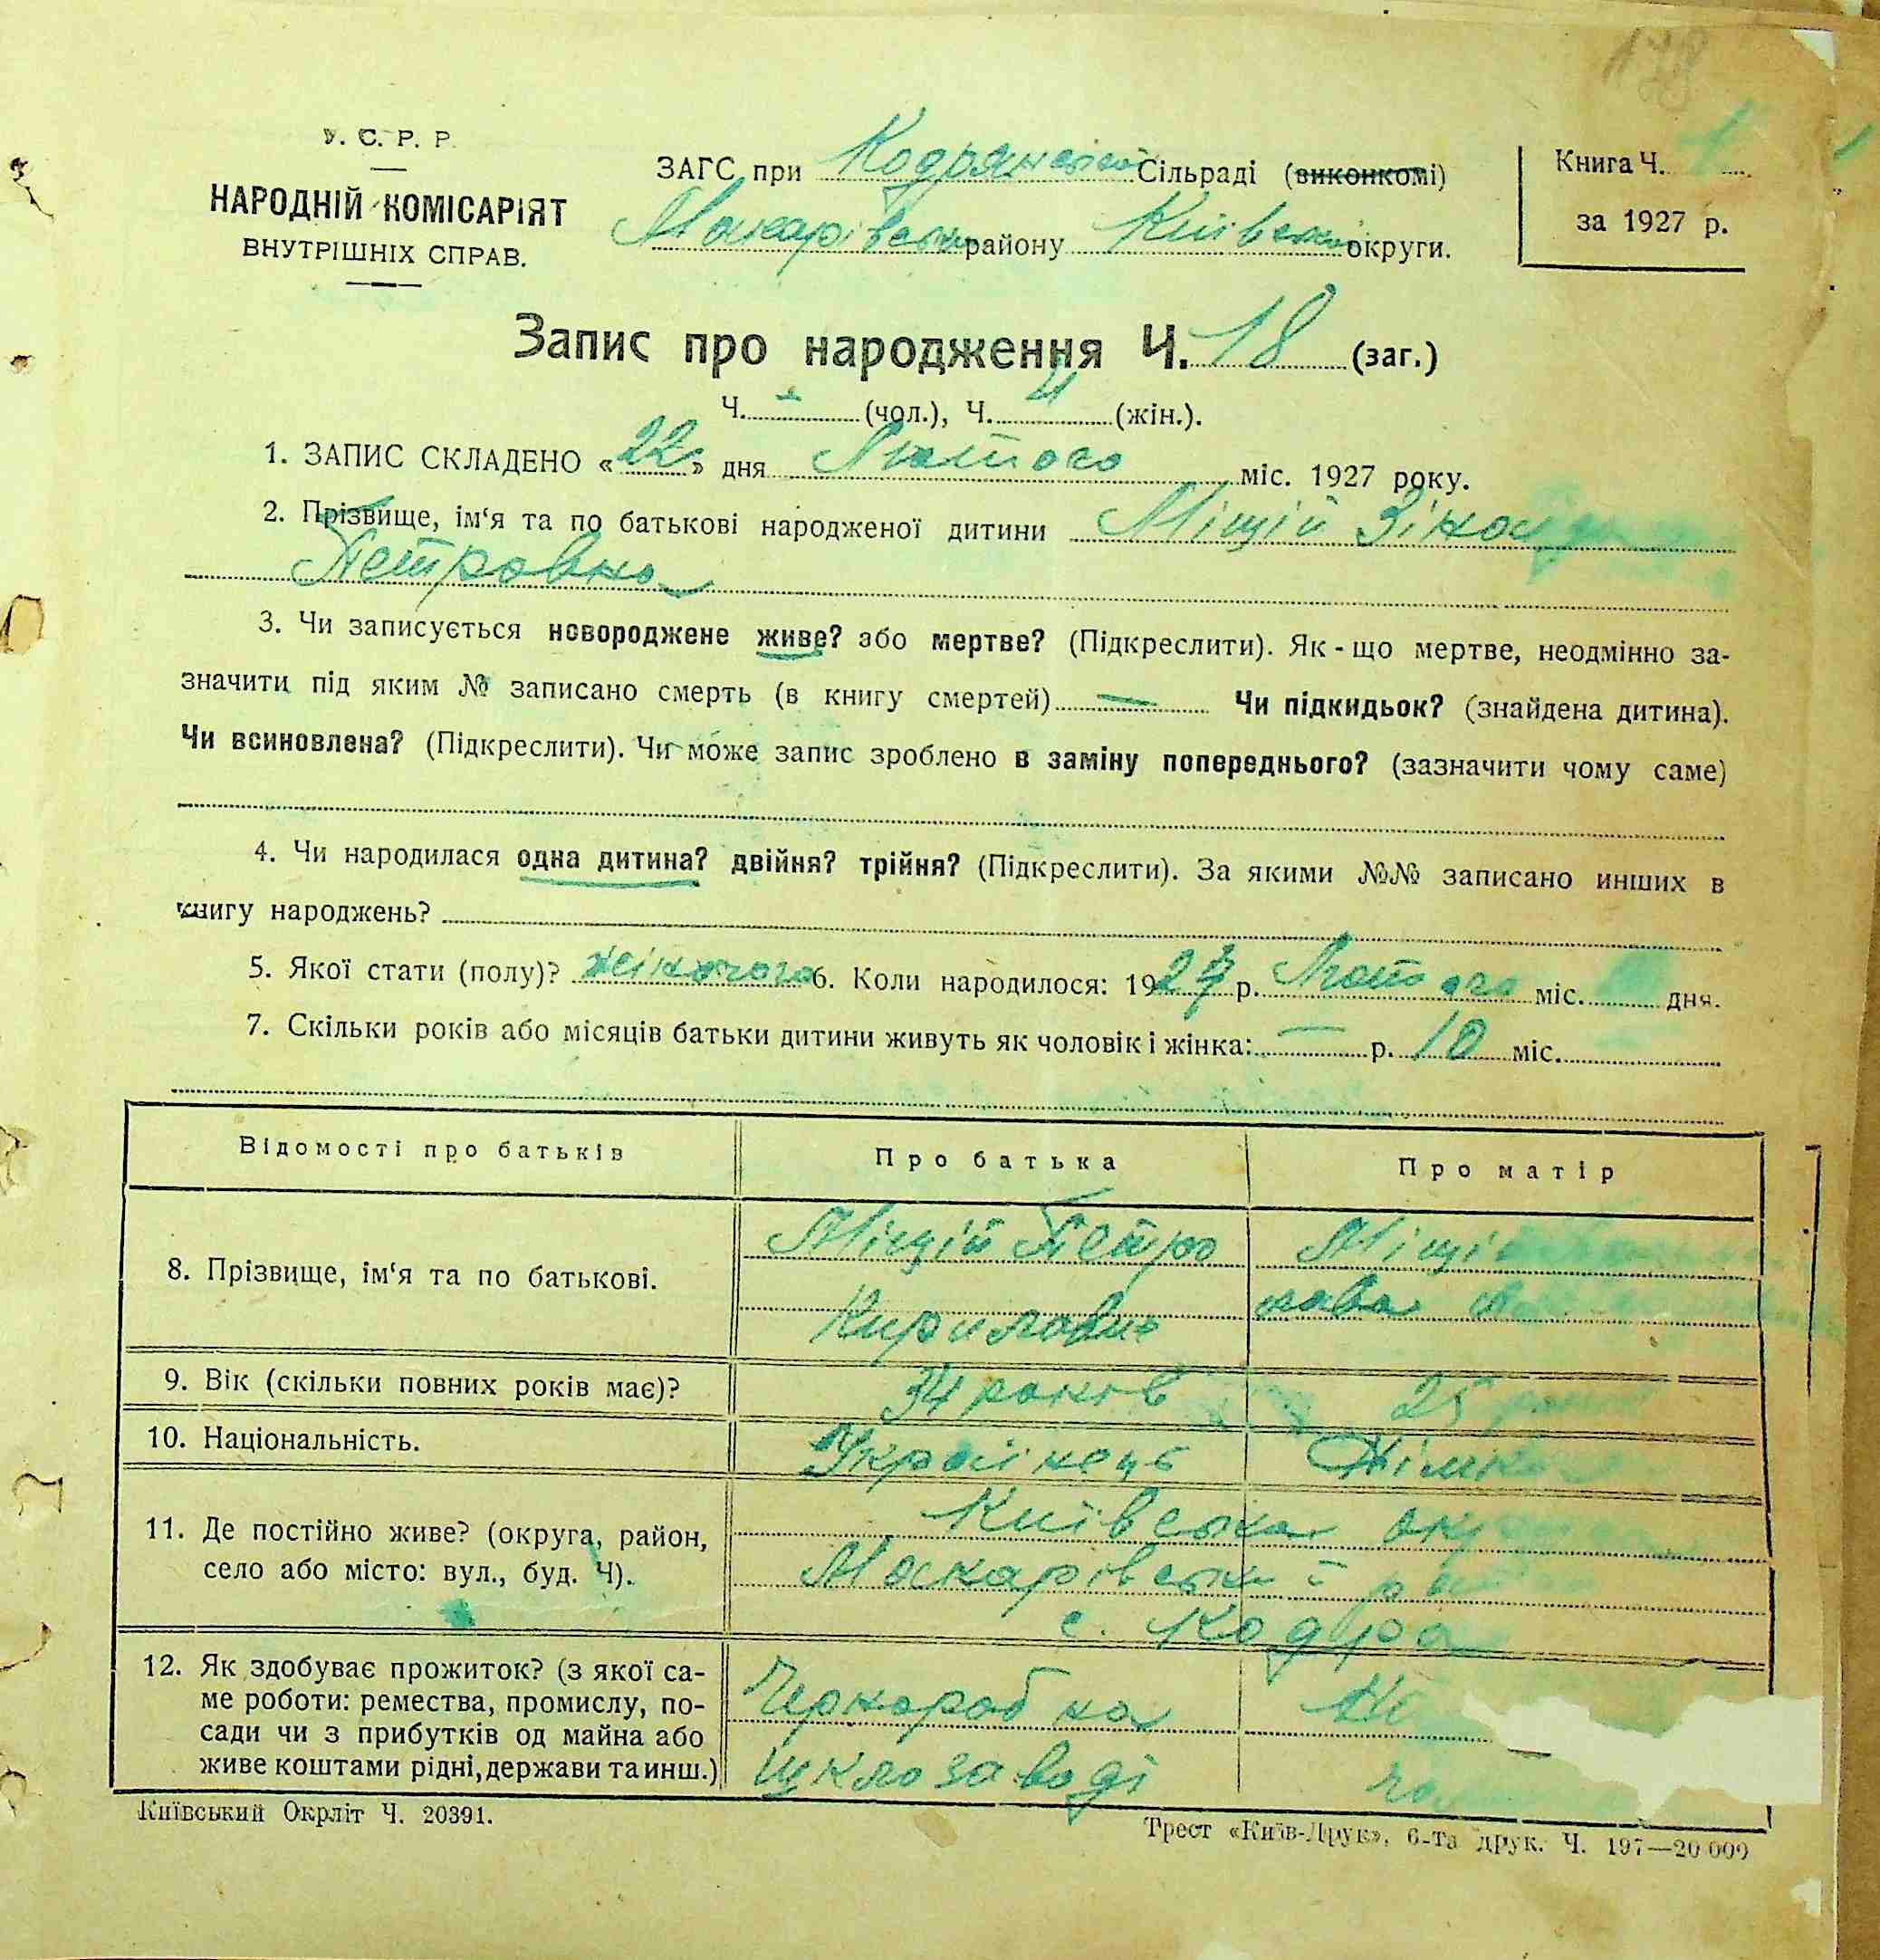 178
У. С. Р. Р.
НАРОДНІЙ КОМІСАРІЯТ
ВНУТРІШНІХ СПРАВ.
ЗАГС при Кодрянській Сільраді (виконкомі)
Макарівськ району Київської округи.
Книга Ч. 1
за 1927 р.
Запис про народження Ч. 18 (заг.)
Ч. — (чол.), Ч. 4 (жін.).
1. ЗАПИС СКЛАДЕНО «22» дня Лютого міс. 1927 року.
2. Прізвище, ім‘я та по батькові народженої дитини Міщій Зінаїда
Петровна
3. Чи записується новороджене живе? або мертве? (Підкреслити). Як - що мертве, неодмінно за-
значити під яким № записано смерть (в книгу смертей) — Чи підкидьок? (знайдена дитина).
Чи всиновлена? (Підкреслити). Чи може запис зроблено в заміну попереднього? (зазначити чому саме)
4. Чи народилася одна дитина? двійня? трійня? (Підкреслити). За якими №№ записано инших в
книгу народжень?
5. Якої стати (полу)? жіночого 6. Коли народилося: 1927 р. Лютого міс. дня.
7. Скільки років або місяців батьки дитини живуть як чоловік і жінка: — р. 10 міс.
Відомості про батьків Про батька Про матір
8. Прізвище, ім‘я та по батькові. Міщій Петро Міщій
Кирилович
9. Вік (скільки повних років має)? 34 років 25
10. Національність. Українець Німка
11. Де постійно живе? (округа, район, Київська окр
село або місто: вул., буд. Ч). Маскарівський
с. Кодра
12. Як здобуває прожиток? (з якої са- Чернороб на
ме роботи: ремества, промислу, по-
сади чи з прибутків од майна або
живе коштами рідні, держави та инш.) щклозаводі
Київський Окрліт Ч. 20391.
Трест «Київ-Друк», 6-та друк. Ч. 197—20 000